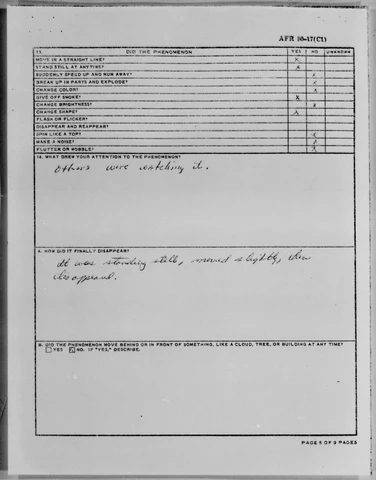 AFR 80-17(C1)
13. DID THE PHENOMENON YES NO UNKNOWN
MOVE IN A STRAIGHT LINE? X
STAND STILL AT ANYTIME? X
SUDDENLY SPEED UP AND RUN AWAY? X
BREAK UP IN PARTS AND EXPLODE? X
CHANGE COLOR? X
GIVE OFF SMOKE? X
CHANGE BRIGHTNESS? X
CHANGE SHAPE? X
FLASH OR FLICKER?
DISAPPEAR AND REAPPEAR?
SPIN LIKE A TOP? X
MAKE A NOISE? X
FLUTTER OR WOBBLE? X
WHAT DREW YOUR ATTENTION TO THE PHENOMENON?
Others were watching it.
HOW DID IT FINALLY DISAPPEAR?
It was standing still, moved slightly, then
disappeared.
DID THE PHENOMENON MOVE BEHIND OR IN FRONT OF SOMETHING, LIKE A CLOUD, TREE, OR BUILDING AT ANY TIME?
YES NO. IF "YES," DESCRIBE.
PAGE 5 OF 9 PAGES